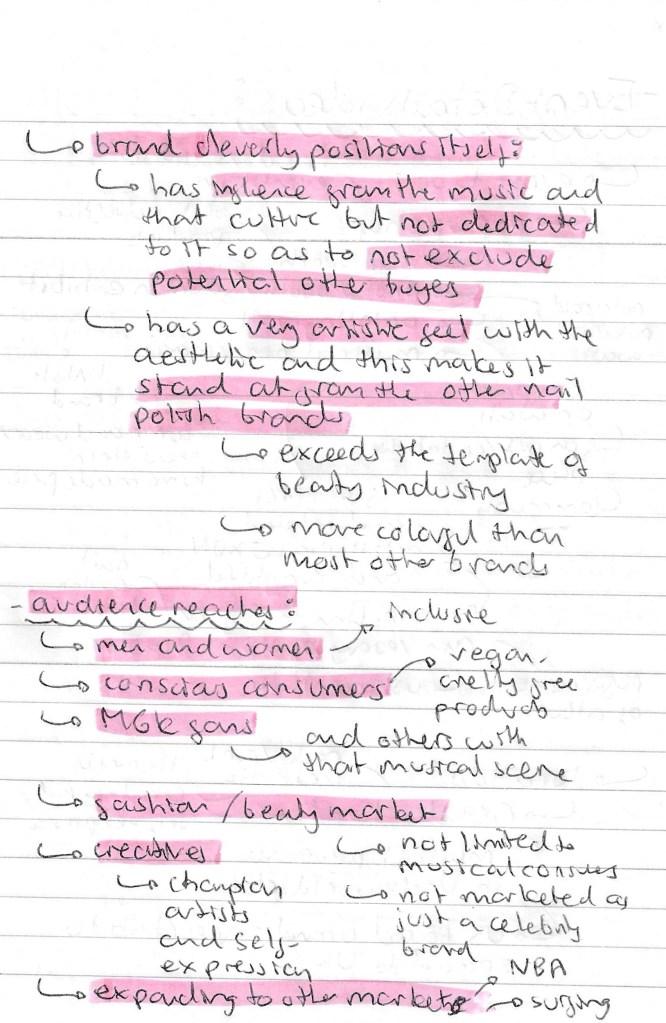 ↳ brand cleverly positions itself:
↳ has influence from the music and
that culture but not dedicated
to it so as to not exclude
potential other buyers
↳ has a very artistic feel with the
aesthetic and this makes it
stand out from the other nail
polish brands
↳ exceeds the template of
beauty industry
↳ more colourful than
most other brands
- audience reaches:
↳ men and women → inclusive
↳ conscious consumers → vegan,
cruelty free
products
↳ MGK fans
↳ and others with
that musical scene
↳ fashion / beauty market
↳ not limited to
musical consumers
↳ not marketed as
just a celebrity
brand
↳ creatives
↳ champion
artists
and self-
expression
↳ expanding to other markets → NBA
→ surfing